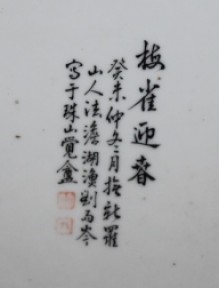 梅雀迎春
癸未仲冬月撫新羅
山人法澹湖漁剛而岑
寫于珠山覺盦